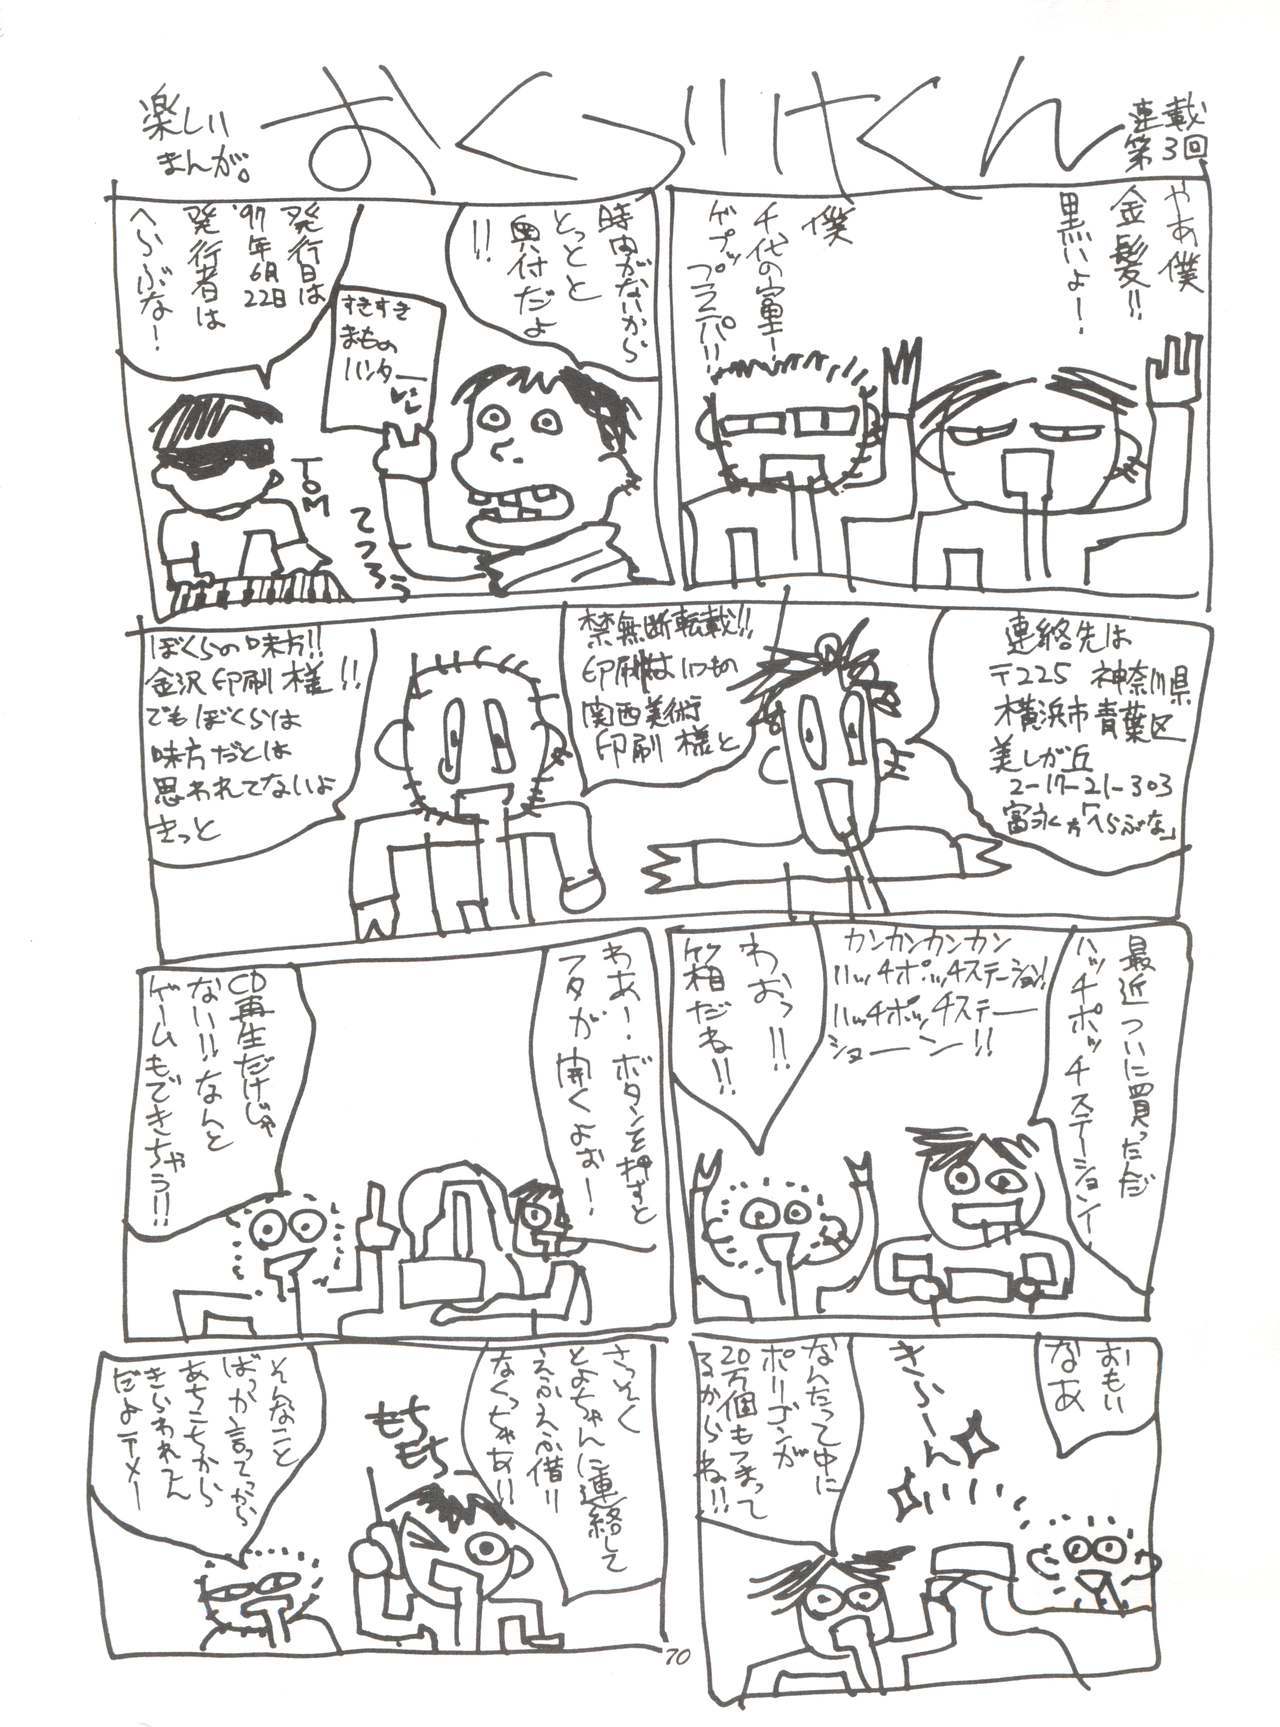 楽しい
まんが。
おくづけくん
連載
第3回
やあ僕
金髪!!
黒いよ!
僕
千代の富士!
ゲプップラニパ!!
時間がないから
とっとと
奥付だよ
!!
すきすき
まもの
ハンター
発行日は
'97年
6月
22日
発行者は
へらぶな!
TOM
てつろう
連絡先は
〒225 神奈川県
横浜市青葉区
美しが丘
2-17-21-303
富永方「へらぶな」
禁無断転載!!
印刷はいつもの
関西美術
印刷様と
ぼくらの味方!!
金沢印刷様!!
でもぼくらは
味方だとは
思われてないよ
きっと
最近ついに買ったんだ
ハッチポッチステーションー
カンカンカンカン
ハッチポッチステーション!
ハッチポッチステー
ショーン!!
わおっ!!
箱だね!!
わあー、ボタンを押すと
フタが開くよぉ!
CD再生だけじゃ
ない!!なんと
ゲームもできちゃう!!
おもい
なあ
きらーん
なんたって中に
ポリゴンが
20万個もつまって
るからね!!
さっそく
とよちゃんに連絡して
えふえふ借り
なくっちゃあ!!
もち
もち
そんなこと
ばっか言ってっから
あちこちから
きらわれてん
だよテメー
70